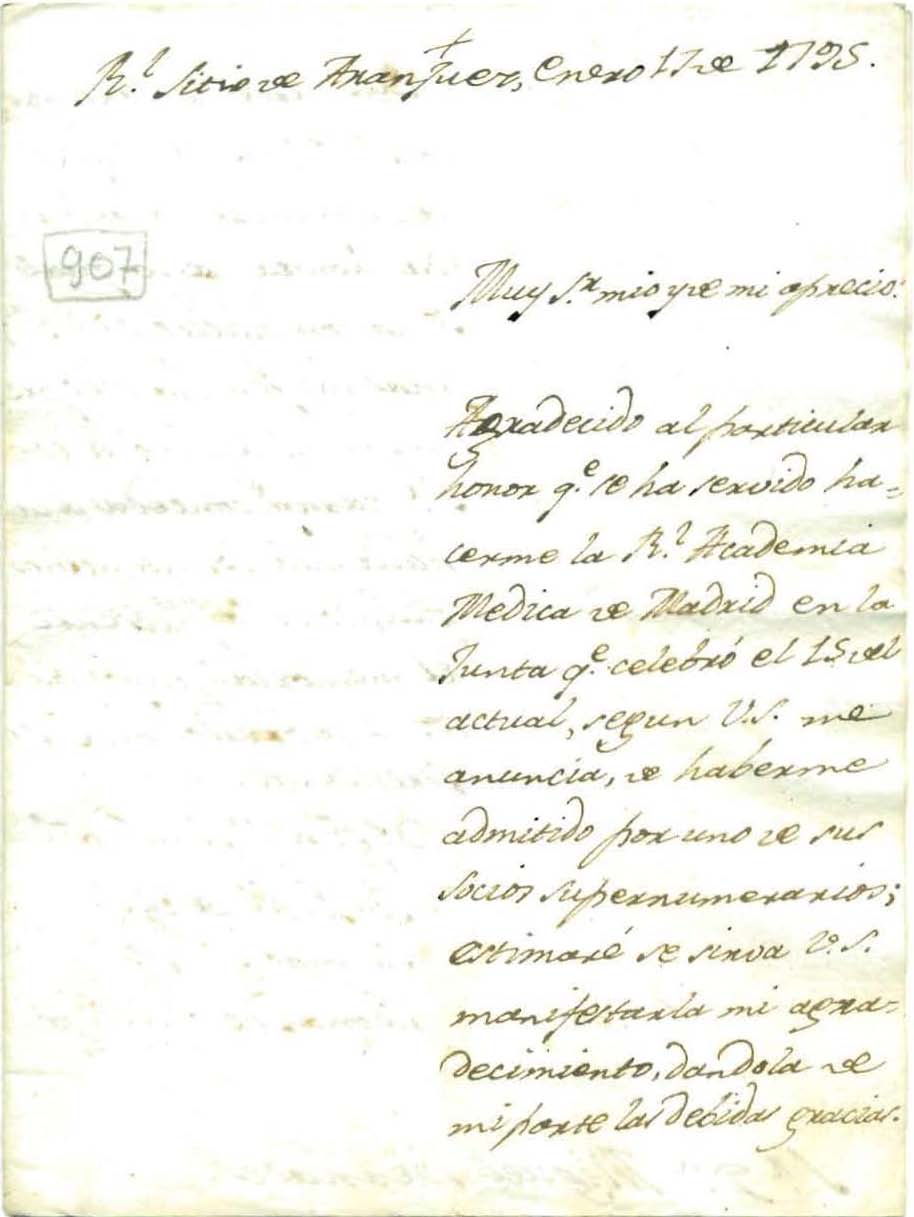 +
R.l Sitio de Aranjuez, enero 17 de 1795.
907
Muy S.r mio y de mi aprecio:
Agradecido al particular
honor q.e se ha servido ha=
cerme la R.l Academia
Medica de Madrid en la
Junta q.e celebró el 15 del
actual, segun V.S. me
anuncia, de haberme
admitido por uno de sus
socios supernumerarios;
estimaré se sirva V.S.
manifestarla mi agra=
decimiento, dandola de
mi parte las debidas gracias.